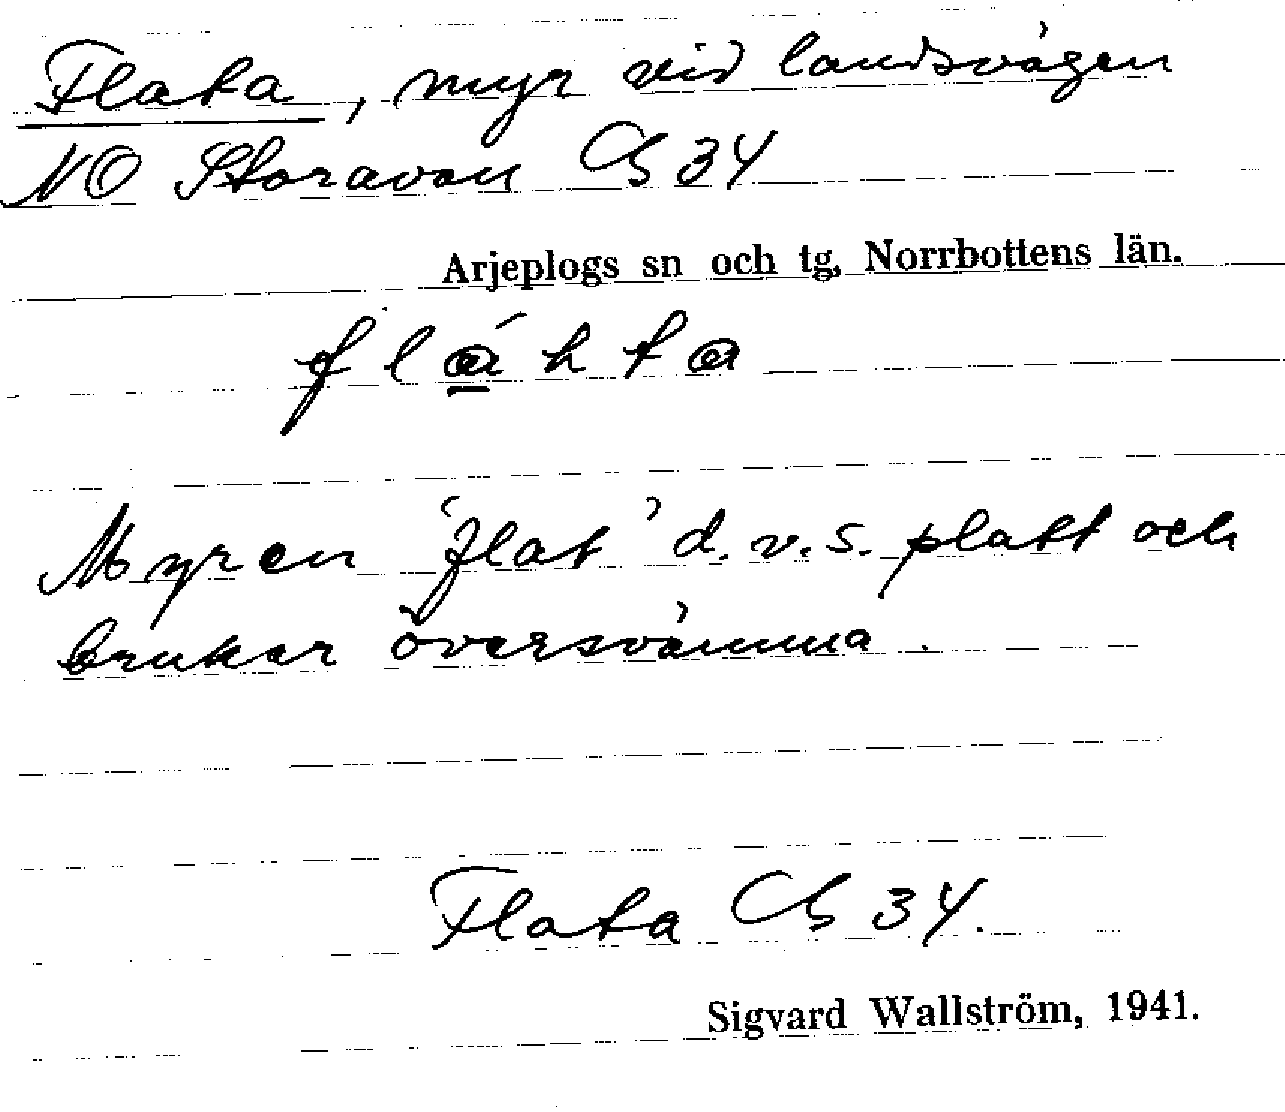 Flata, myr vid landsvägen
NO Storavan Cb 34
Arjeplogs sn och tg, Norrbottens län.
fláhta
Myren 'flat' d.v.s. platt och
brukar översvämma.
Flata Cb 34.
Sigvard Wallström, 1941.